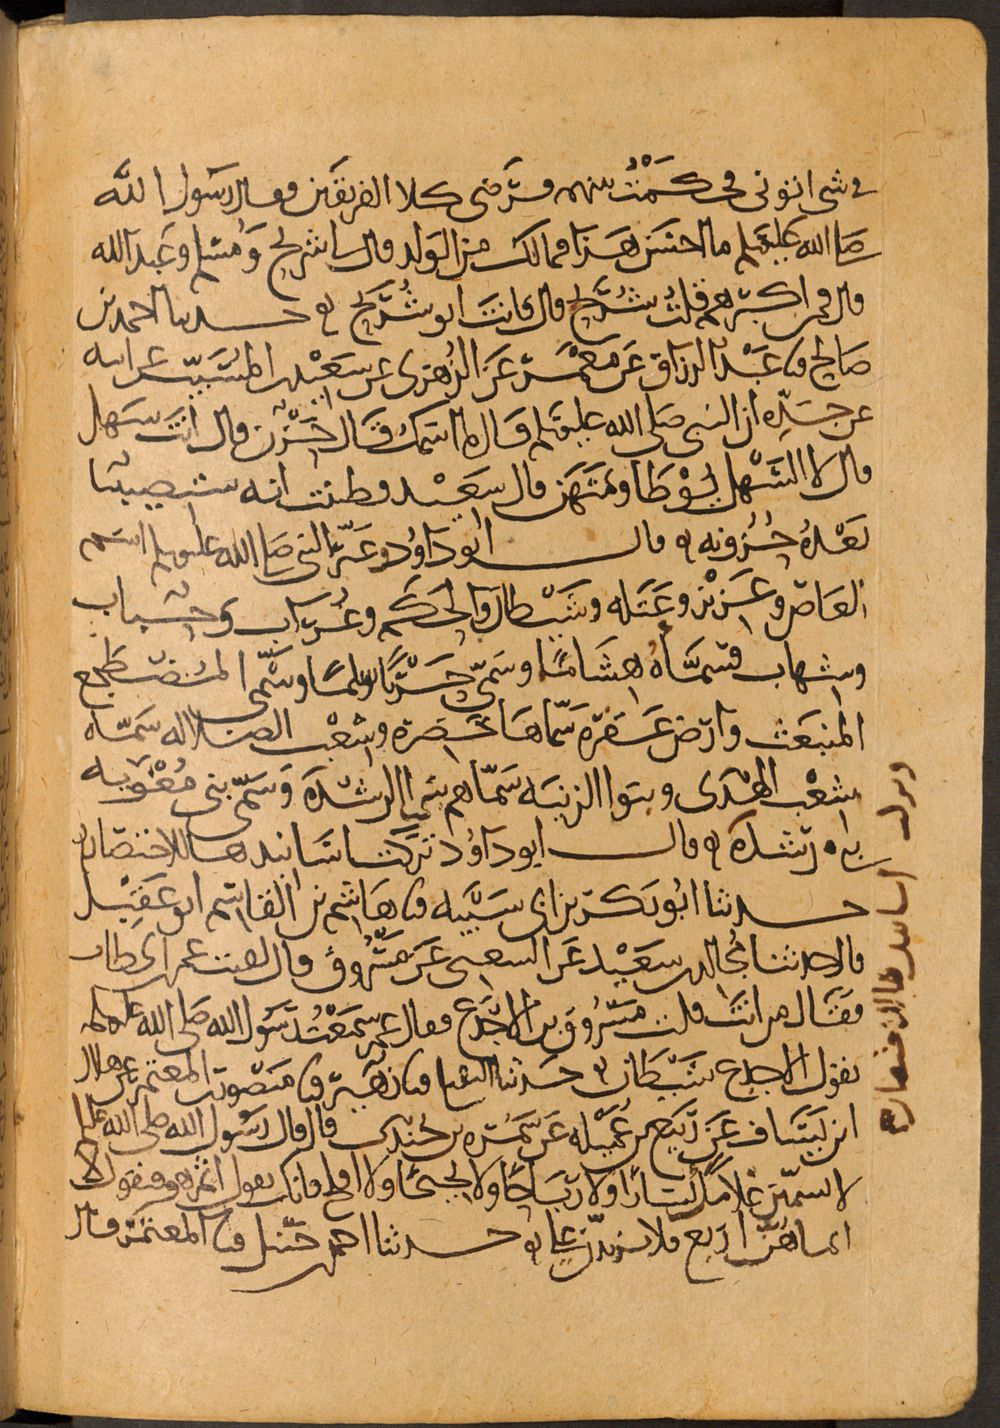 في شي اتوني فحكمت بينهم فرضي كلا الفريقين فقال رسول الله
صلى الله عليه وسلم ما احسن هذا فمالك من الولد قال لي شريح ومسلم وعبد الله
قال فمن اكبرهم قلت شريح قال فانت ابو شريح حدثنا احمد بن
صالح نا عبد الرزاق عن معمر عن الزهري عن سعيد بن المسيب عن ابيه
عن جده ان النبي صلى الله عليه وسلم قال ما اسمك قال حزن قال انت سهل
قال لا السهل يوطا ويمتهن قال سعيد فظننت انه سيصيبنا
بعده حزونه قال ابو داود وغير النبي صلى الله عليه وسلم اسم
العاص وعزيز وعتله وشيطان والحكم وغراب وحباب
وشهاب فسماه هشاما وسمى حربا سلما وسمى المضطجع
المنبعث وارض عفرة سماها خضرة وشعب الضلاله سماه
شعب الهدى وبنوا الزنيه سماهم بني الرشدة وسمى بني مغويه
بني رشدة قال ابو داود تركت اسانيدها للاختصار
حدثنا ابو بكر بن ابي شيبه نا هاشم بن القاسم ابو عقيل
قال حدثنا مجالد بن سعيد عن الشعبي عن مسروق قال لقيت عمر بن الخطاب
فقال من انت قلت مسروق بن الاجدع فقال عمر سمعت رسول الله صلى الله عليه وسلم
يقول الاجدع شيطان حدثنا النفيلي نا زهير نا منصور بن المعتمر عن هلال
ابن يساف عن ربيع بن عميله عن سمرة بن جندب قال قال رسول الله صلى الله عليه
لا تسمين غلامك يسارا ولا رباحا ولا نجيحا ولا افلح فانك تقول اثم هو فيقول لا
انما هن اربع فلا تزيدن علي حدثنا احمد بن حنبل نا المعتمر قال